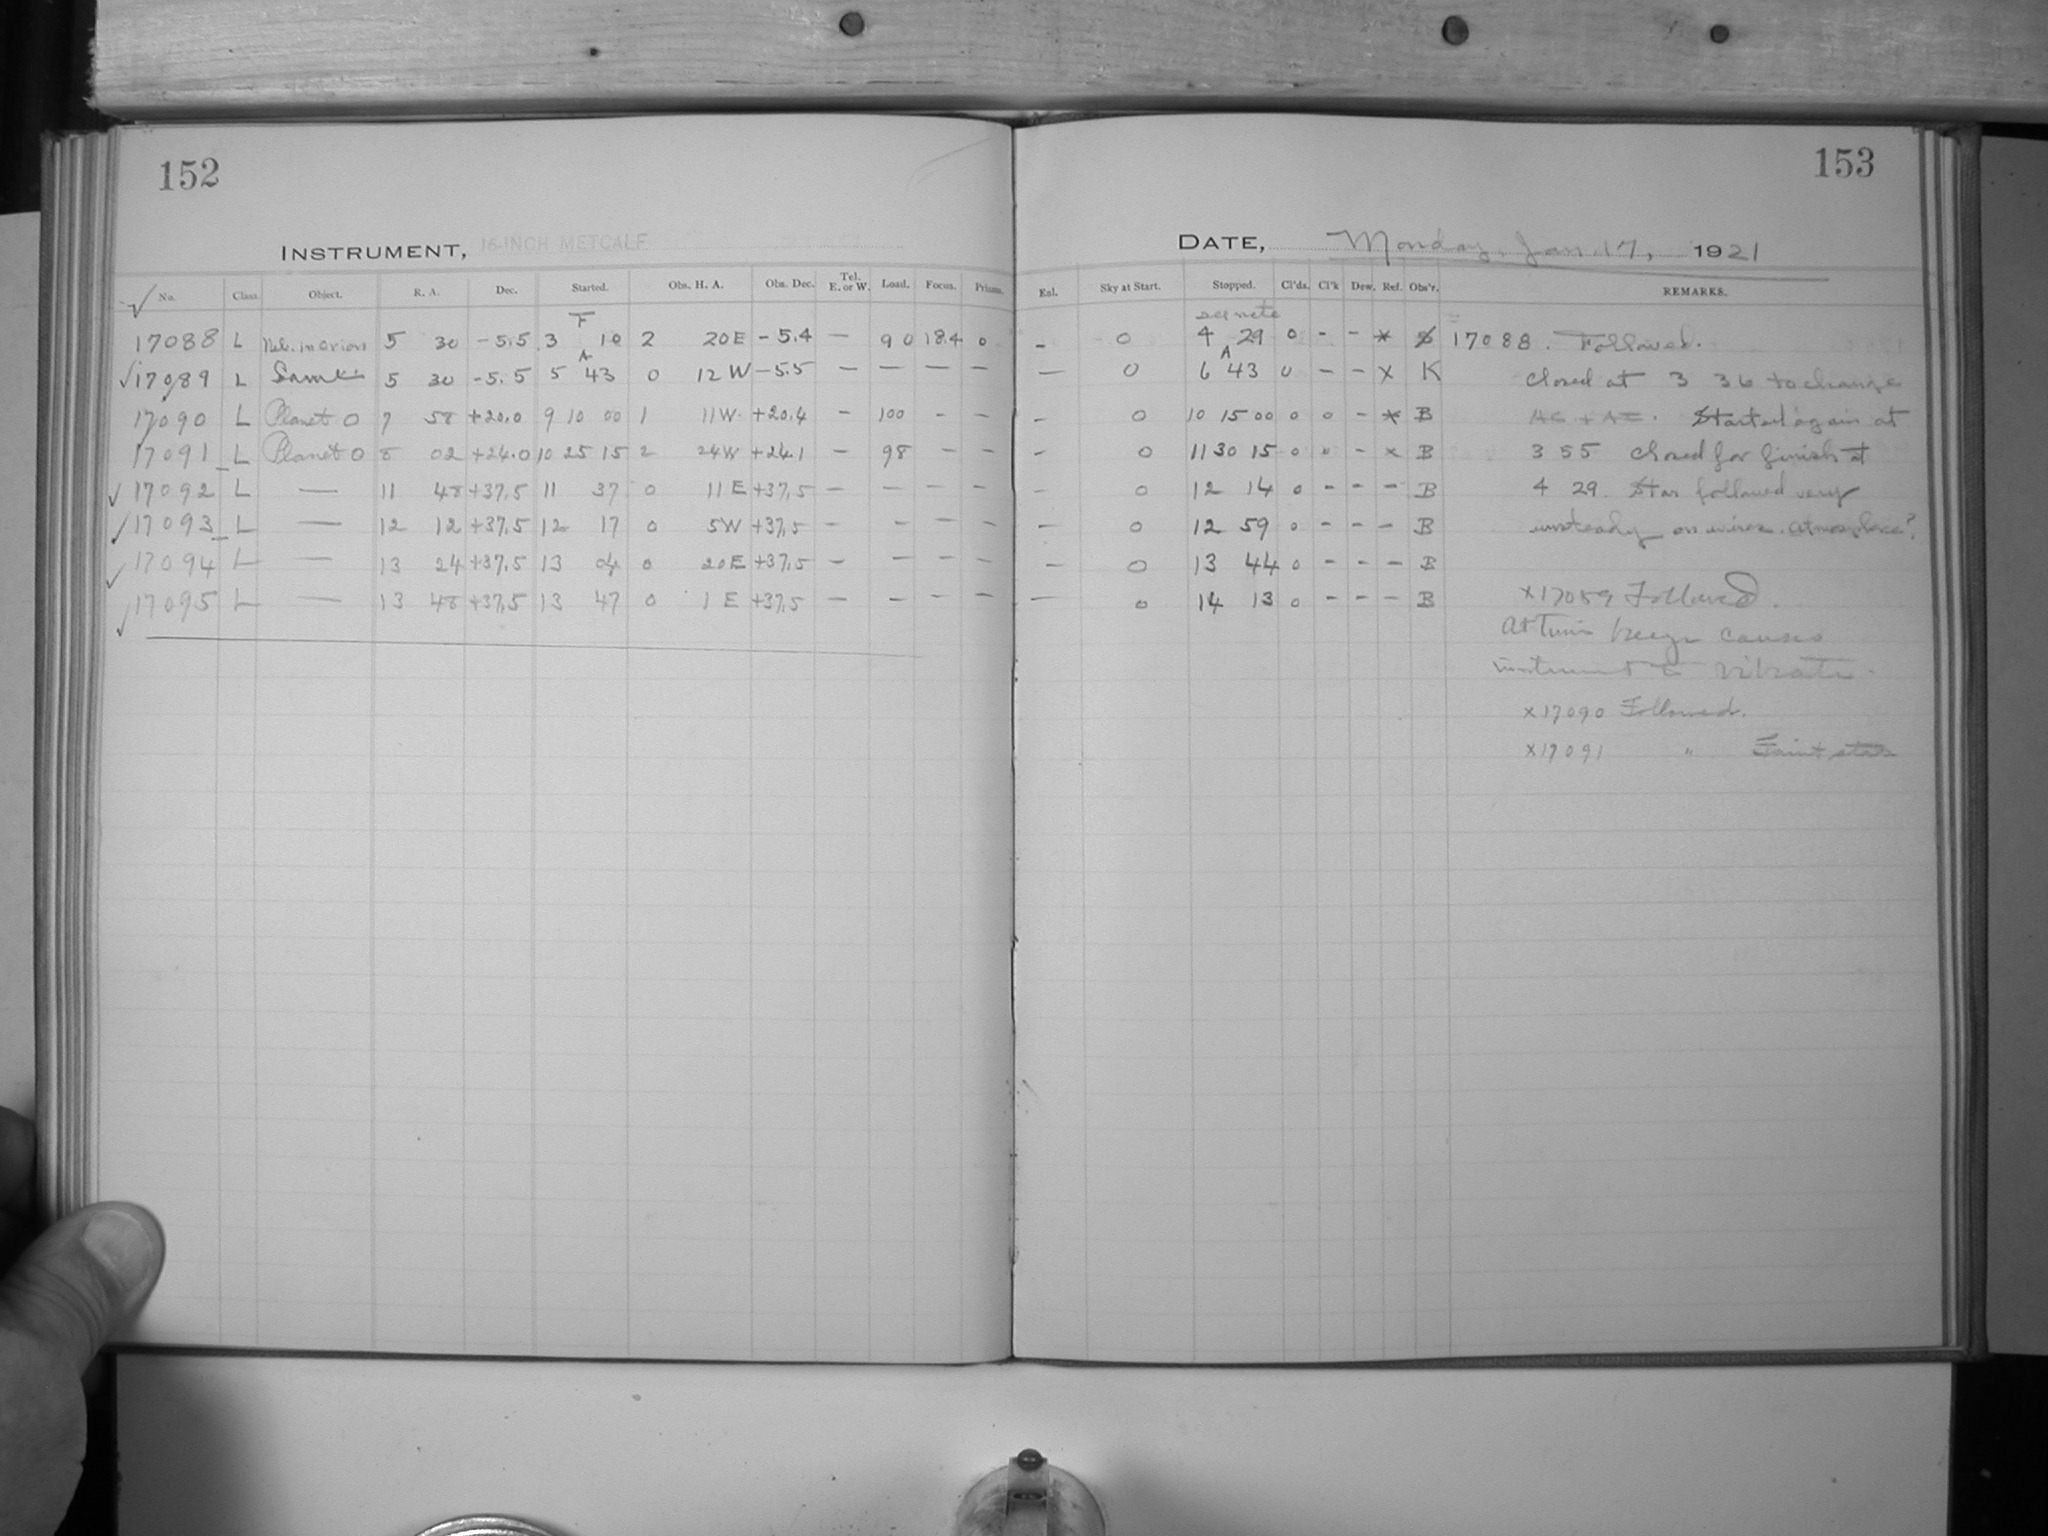 152
INSTRUMENT, 16-INCH METCALF
No. Class. Object. R. A. Dec. Started. Obs. H. A. Obs. Dec. Tel. E. or W. Load. Focus. Prisms.
17088 L Neb. in Orion 5 30 -5.5 3 F 10 2 20E -5.4 — 90 18.4 0
✓17089 L Same 5 30 -5.5 5 A 43 0 12W -5.5 — — — —
17090 L Planet O 7 58 +20.0 9 10 00 1 11W +20.4 - 100 - -
17091 L Planet O 8 02 +24.0 10 25 15 2 24W +24.1 - 98 - -
✓17092 L — 11 48 +37.5 11 37 0 11E +37.5 — — - -
✓17093 L — 12 12 +37.5 12 17 0 5W +37.5 — - - -
✓17094 L — 13 24 +37.5 13 04 0 20E +37.5 — - - -
✓17095 L — 13 48 +37.5 13 47 0 1E +37.5 — - - -
153
DATE, Monday, Jan 17, 1921
Exl. Sky at Start. Stopped. Cl'ds. Cl'k Dew. Ref. Obs'r. REMARKS.
see note
- 0 4 29 0 - - * 17088. Followed.
— 0 6 A 43 0 - - x K closed at 3 36 to change
- 0 10 15 00 0 0 - * B Started again at
- 0 11 30 15 0 0 - x B 3 55 closed for finish at
- 0 12 14 0 - - - B 4 29. Star followed very
— 0 12 59 0 - - - B unsteady on wires. atmosphere?
— 0 13 44 0 - - - B
— 0 14 13 0 - - - B x17089 Followed.
At Times causes
instrument to vibrate.
x17090 Followed.
x17091 " Faint star